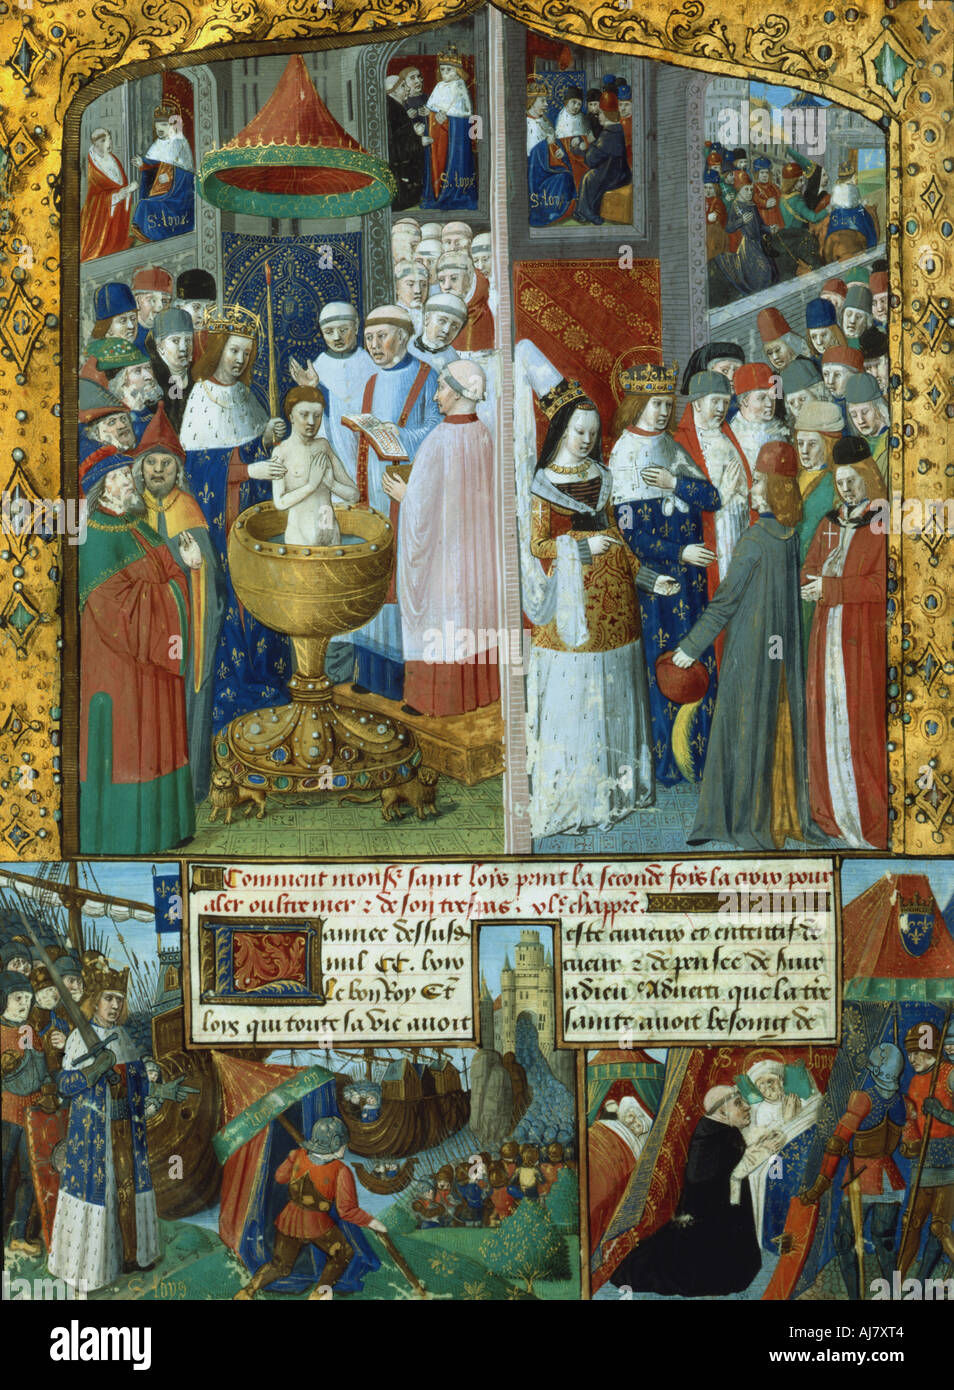 S. Loys
S. loys
S. loys
S. Loys
Comment monsr saint loys print la seconde foys la croix pour
aler oultre mer & de son trespas. xle chappre.
Lannee dessusd
mil CC. lxix
Le bon Roy St
loys qui toute sa vie avoit
este curieux et ententif de
cueur & de pensee de servir
a dieu Adverti que la tre
sainte avoit besoing de
S. Loys
S Loys
alamy
Image ID: AJ7XT4
www.alamy.com